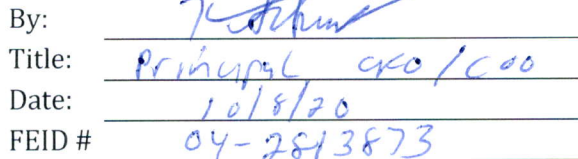 By:
Title: Principal CFO / COO
Date: 10/8/20
FEID # 04-2813873